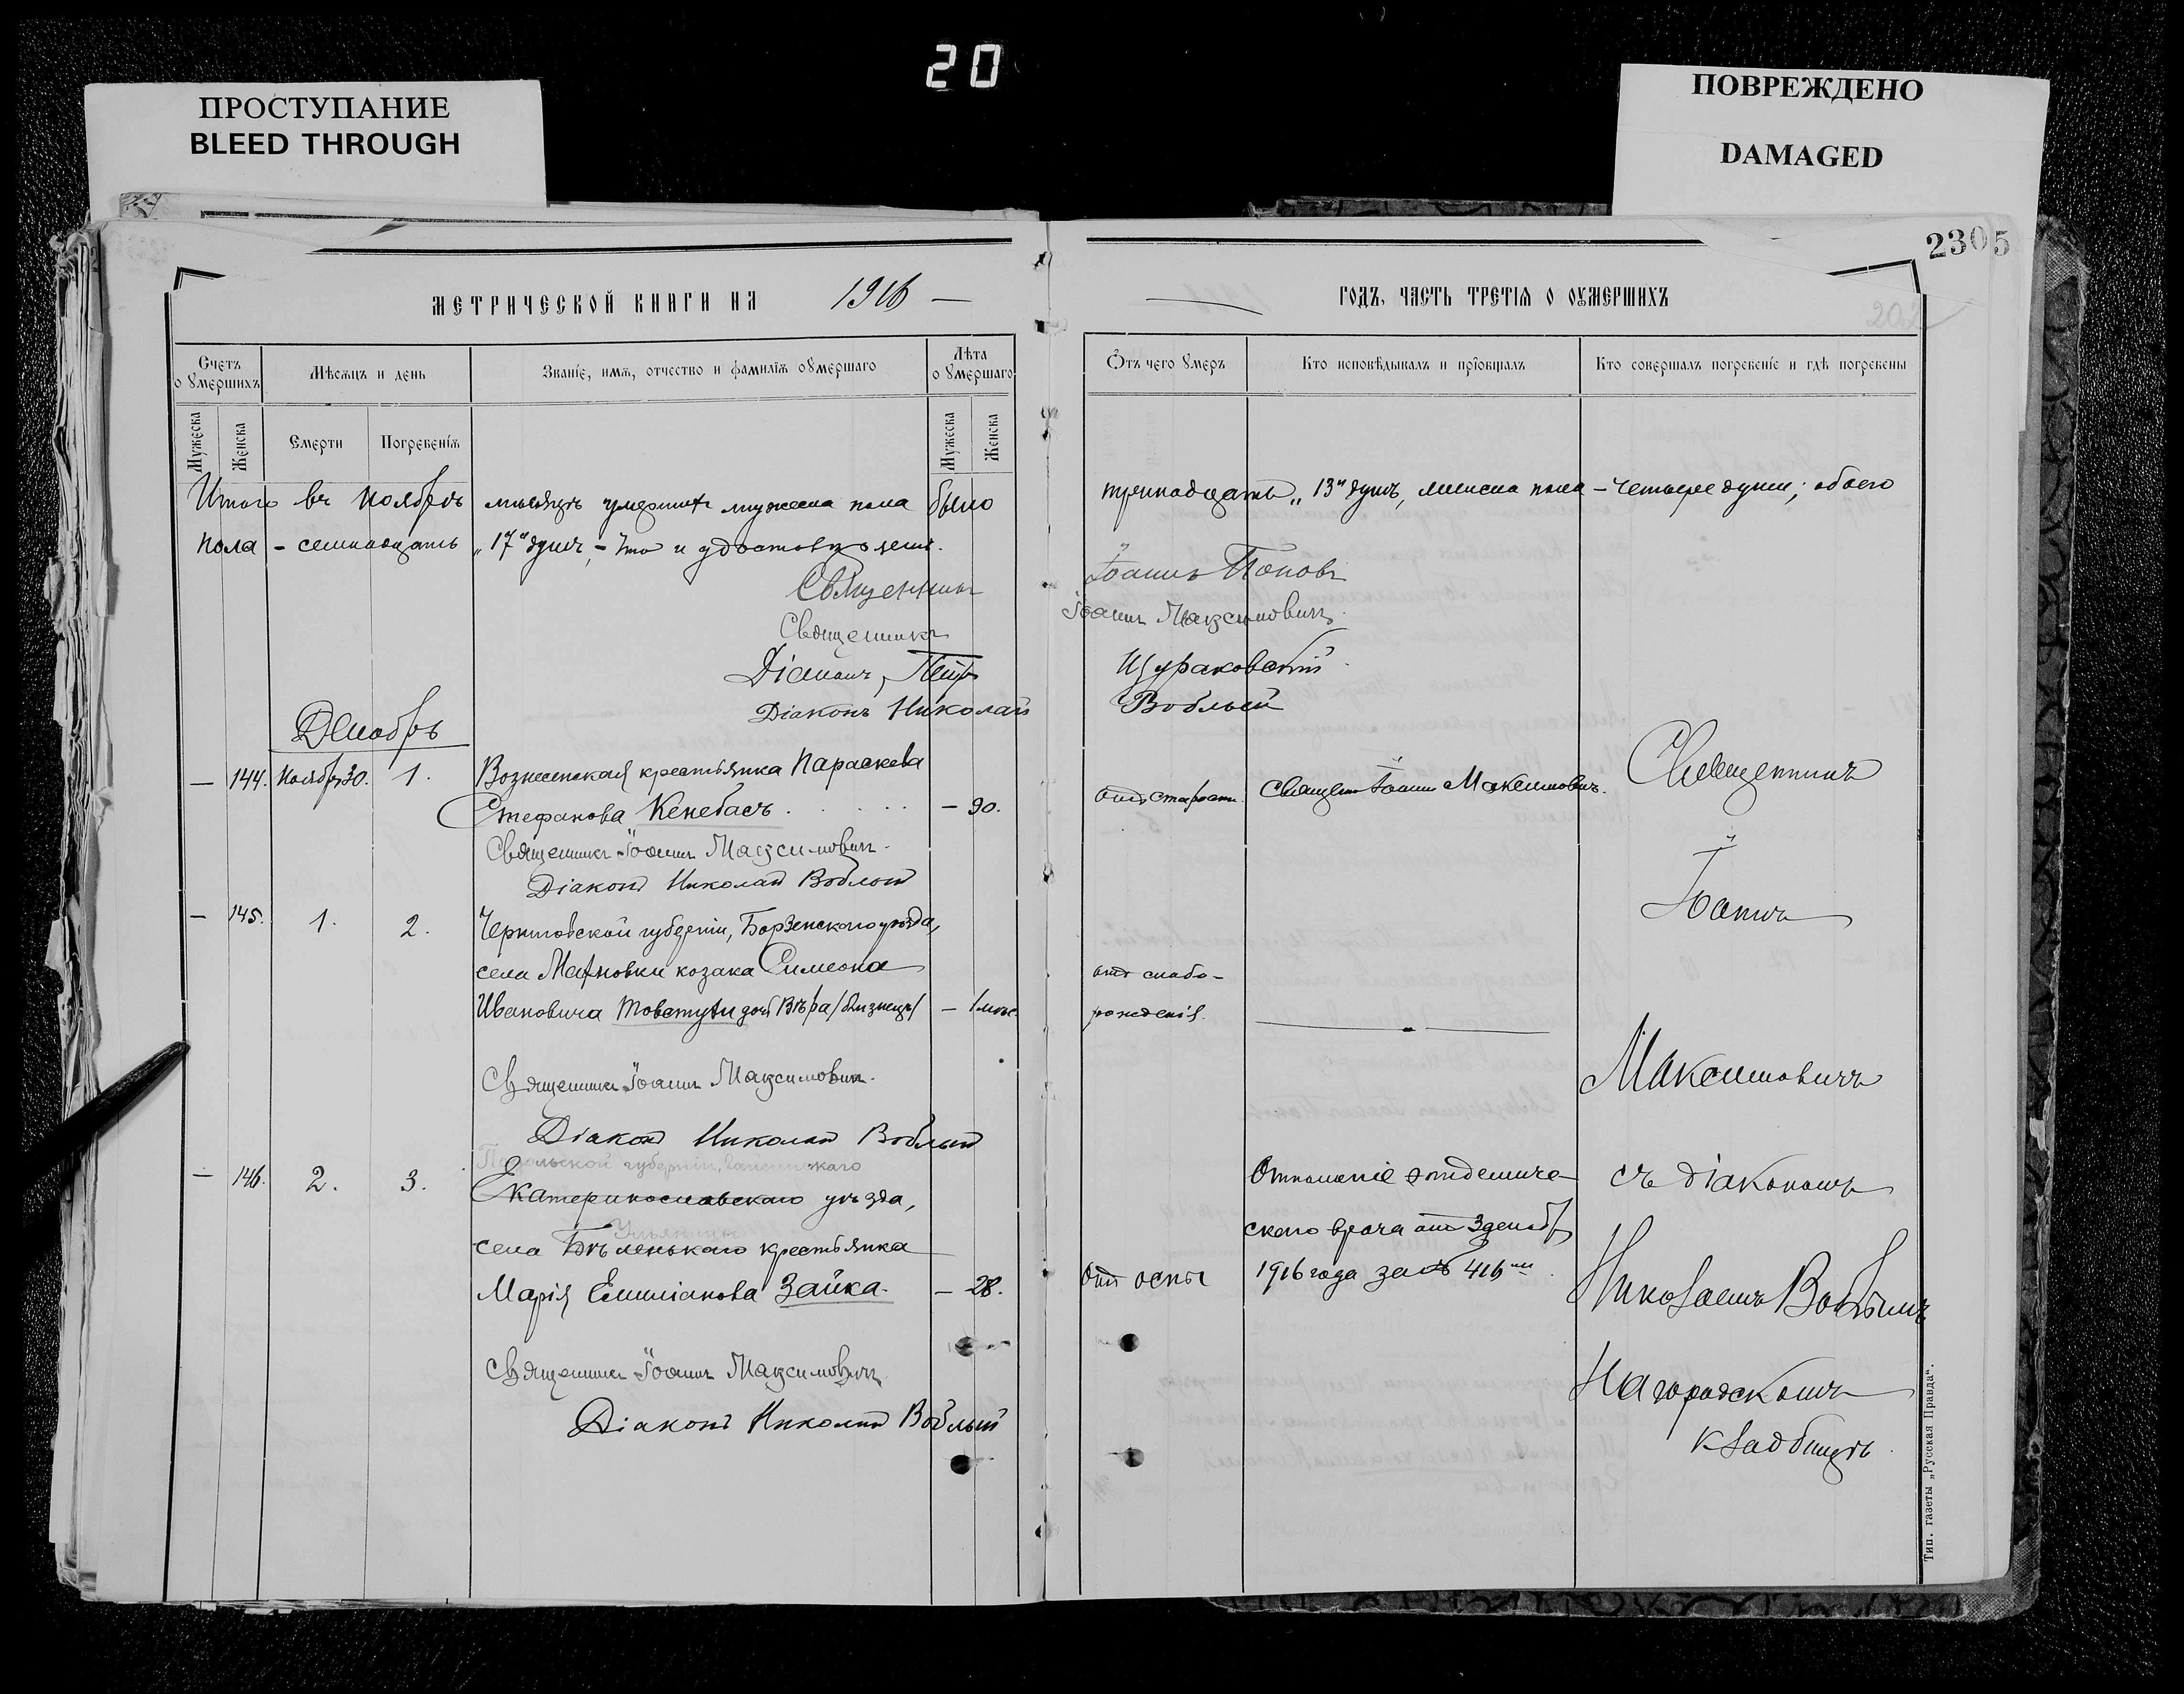 20
ПРОСТУПАНИЕ
BLEED THROUGH
ПОВРЕЖДЕНО
DAMAGED
2305
202
МЕТРИЧЕСКОЙ КНИГИ НА 1916 —
Счетъ о умершихъ
Мѣсяцъ и день
Званіе, имя, отчество и фамилія умершаго
Лѣта о умершаго
Мужеска
Женска
Смерти
Погребенія
Мужеска
Женска
— ГОДЪ, ЧАСТЬ ТРЕТІЯ О УМЕРШИХЪ
Отъ чего умеръ
Кто исповѣдывалъ и пріобщалъ
Кто совершалъ погребеніе и гдѣ погребены
Итого въ ноябрѣ мѣсяцѣ умершихъ мужеска пола было тринадцать „13" душъ, женска пола – четыре души; обоего
пола – семнадцать „17" душъ, – что и удостовѣряемъ.
Священникъ Іоаннъ Поповъ
Священникъ Іоаннъ Максимовичъ
Діаконъ Петръ Щураковскій
Діаконъ Николай Воблый
Декабрь
— 144. Ноябр 30. 1. Вознесенская крестьянка Параскева
Стефанова Кенебасъ . — 90. отъ старости. Священ Іоаннъ Максимовичъ.
Священникъ Іоаннъ Максимовичъ.
Діаконъ Николай Воблый
— 145. 1. 2. Черниговской губерніи, Борзенского уѣзда,
села Махновки козака Симеона
Ивановича Товстухи дочь Вѣра /близнецъ/ — 1 мѣс.
отъ слабо-
рожденія.
Священникъ Іоаннъ Максимовичъ.
Діаконъ Николай Воблый
— 146. 2. 3. Подольской губерніи, Гайсинскаго
Екатеринославскаго уѣзда,
села Бѣленькаго крестьянка
Марія Емиліанова Зайка. — 28. отъ оспы
Отношеніе эпидемиче-
скаго врача отъ 3 декабр
1916 года за № 416
Священникъ Іоаннъ Максимовичъ.
Діаконъ Николай Воблый
Священникъ
Іоаннъ
Максимовичъ
съ діакономъ
Николаемъ Воблымъ
На городскомъ
кладбищѣ.
Тип. газеты „Русская Правда".